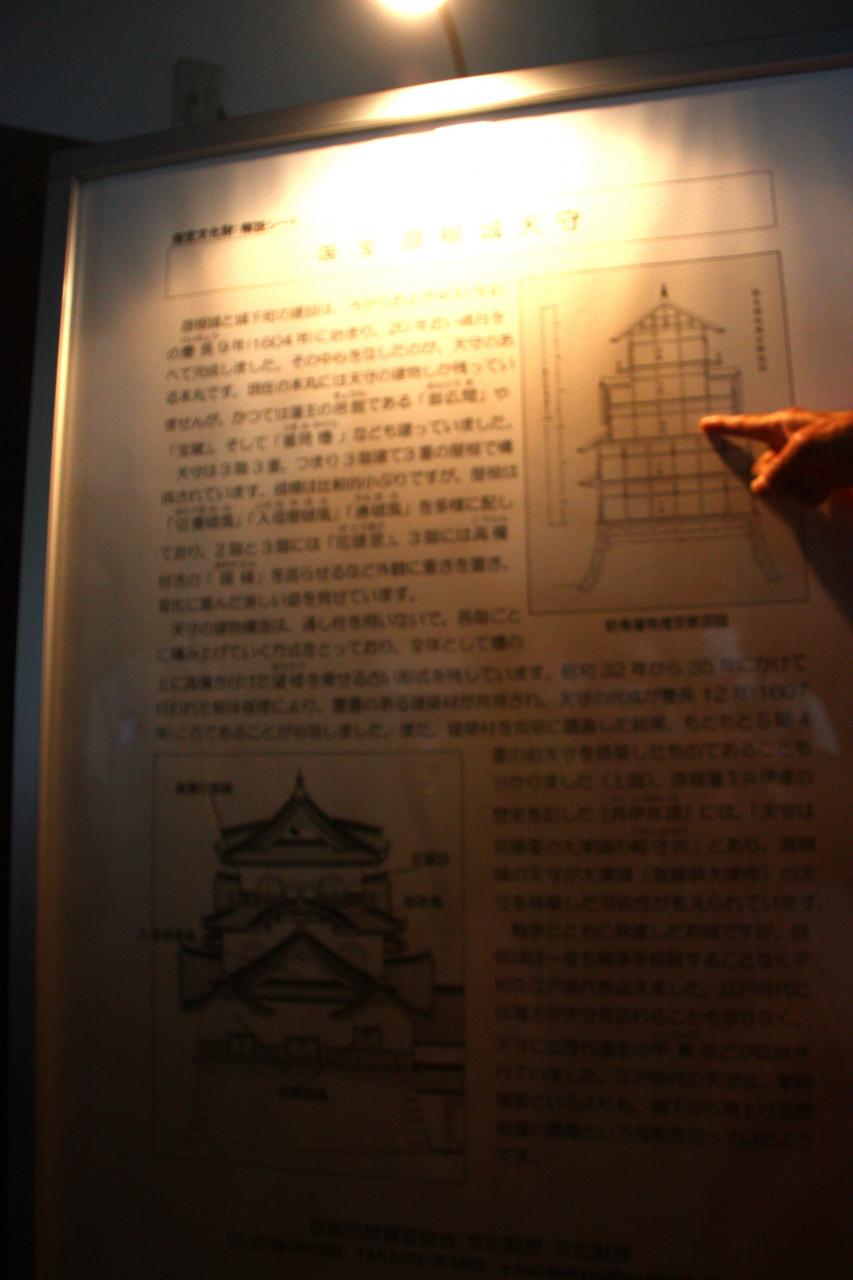 指定文化財 解説シート
国宝 彦根城天守
彦根城と城下町の建設は、今からおよそ400年前
の慶長9年(1604年)に始まり、20年近い歳月を
べて完成しました。その中心をなしたのが、天守のあ
る本丸です。現在の本丸には天守の建物しか残ってい
ませんが、かつては藩主の居館である「御広間」や
「宝蔵」、そして「着見櫓」なども建っていました。
天守は3階3重、つまり3階建て3重の屋根で構
成されています。規模は比較的小ぶりですが、屋根は
「切妻破風」「入母屋破風」「唐破風」を多様に配し
ており、2階と3階には「花頭窓」、3階には高欄
付きの「廻縁」を巡らせるなど外観に重きを置き、
変化に富んだ美しい姿を見せています。
天守の建物構造は、通し柱を用いないで、各階ごと
に積み上げていく方式をとっており、全体として櫓の
上に高欄を付けた望楼を乗せる古い形式を残しています。昭和32年から35年にかけて
行われた解体修理により、墨書のある建築材が発見され、天守の完成が慶長12年(1607
年)ころであることが判明しました。また、建築材を克明に調査した結果、もともと5階4
重の旧天守を移築したものであることも
分かりました(上図)。彦根藩主井伊家の
歴史を記した『井伊年譜』には、「天守は
京極家の大津城の殿守也」とあり、彦根
城の天守が大津城(滋賀県大津市)の天
守を移築した可能性が考えられています。
戦争とともに発達したお城ですが、彦
根城は一度も戦争を経験することなく平
和な江戸時代を迎えました。江戸時代に
は藩主が天守を訪れることも余りなく、
天守には歴代藩主の甲冑などが収納さ
れていました。江戸時代の天守は、軍用
建築というよりも、城下から見上げる彦
根藩の象徴という役割を担っていたよう
です。
前身建物推定断面図
高欄付廻縁
花頭窓
唐破風
入母屋破風
切妻破風
彦根市教育委員会 文化財部 文化財課